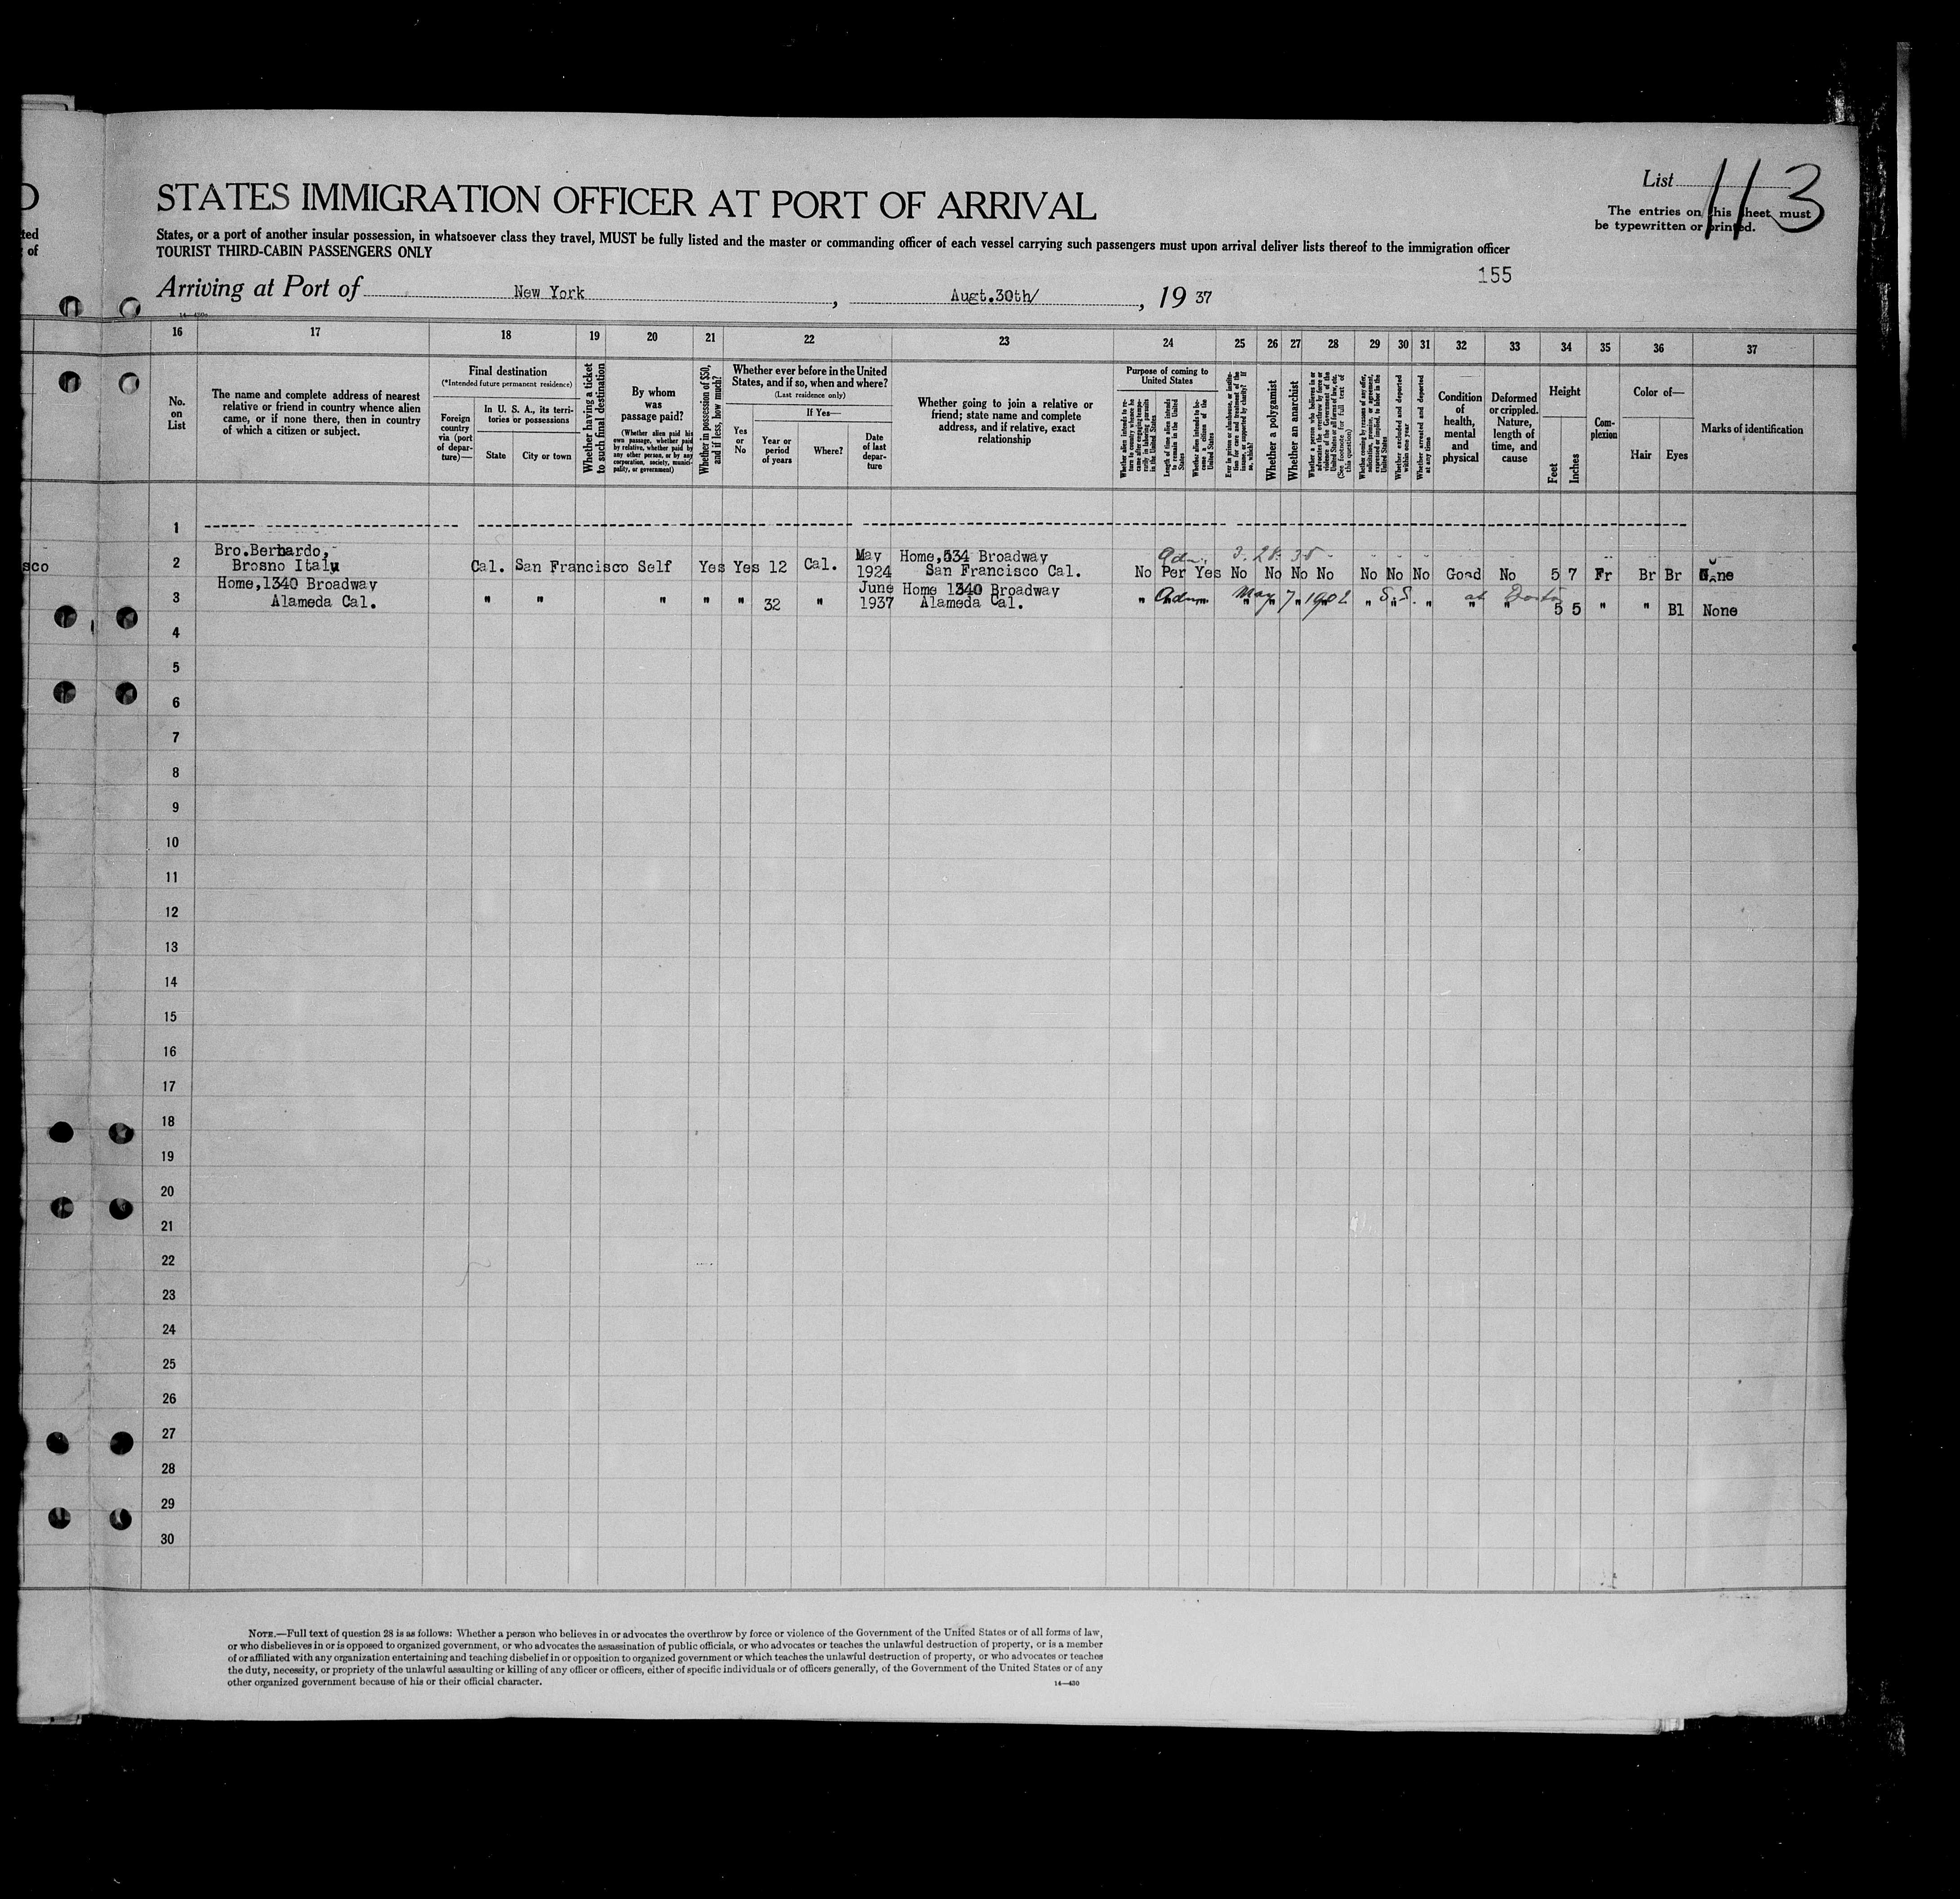 D
ted
of
sco
List 113
The entries on this sheet must
be typewritten or printed.
STATES IMMIGRATION OFFICER AT PORT OF ARRIVAL
States, or a port of another insular possession, in whatsoever class they travel, MUST be fully listed and the master or commanding officer of each vessel carrying such passengers must upon arrival deliver lists thereof to the immigration officer
TOURIST THIRD-CABIN PASSENGERS ONLY
155
Arriving at Port of New York, Augt.30th/, 19 37
16 17 18 19 20 21 22 23 24 25 26 27 28 29 30 31 32 33 34 35 36 37
No.
on
List
The name and complete address of nearest
relative or friend in country whence alien
came, or if none there, then in country
of which a citizen or subject.
Final destination
(*Intended future permanent residence)
Foreign
country
via (port
of depar-
ture)—
In U. S. A., its terri-
tories or possessions
State
City or town
Whether having a ticket
to such final destination
By whom
was
passage paid?
(Whether alien paid his
own passage, whether paid
by relative, whether paid by
any other person, or by any
corporation, society, munici-
pality, or government)
Whether in possession of $50,
and if less, how much?
Whether ever before in the United
States, and if so, when and where?
(Last residence only)
Yes
or
No
If Yes—
Year or
period
of years
Where?
Date
of last
depar-
ture
Whether going to join a relative or
friend; state name and complete
address, and if relative, exact
relationship
Purpose of coming to
United States
Whether alien intends to re-
turn to country whence he
came after engaging tempo-
rarily in laboring pursuits
in the United States
Length of time alien intends
to remain in the United
States
Whether alien intends to be-
come a citizen of the
United States
Ever in prison or almshouse, or institu-
tion for care and treatment of the
insane, or supported by charity? If
so, which?
Whether a polygamist
Whether an anarchist
Whether a person who believes in or
advocates the overthrow by force or
violence of the Government of the
United States or all forms of law, etc.
(See footnote for full text of
this question)
Whether coming by reasons of any offer,
solicitation, promise, or agreement,
expressed or implied, to labor in the
United States
Whether excluded and deported
within one year
Whether arrested and deported
at any time
Condition
of
health,
mental
and
physical
Deformed
or crippled.
Nature,
length of
time, and
cause
Height
Feet
Inches
Com-
plexion
Color of—
Hair
Eyes
Marks of identification
1
Bro.Bernardo,
2 Brosno Italy Cal. San Francisco Self Yes Yes 12 Cal. May 1924 Home,534 Broadway San Francisco Cal. No Per Yes No No No No No No No Good No 5 7 Fr Br Br None
Adm. 3. 28. 35
Home,1340 Broadway
3 Alameda Cal. " " " " " 32 " June 1937 Home 1340 Broadway Alameda Cal. " " " " " " " " " " " " 5 5 " " Bl None
Adm May 7, 1902 S.S. at Boston
4
5
6
7
8
9
10
11
12
13
14
15
16
17
18
19
20
21
22
23
24
25
26
27
28
29
30
NOTE.—Full text of question 28 is as follows: Whether a person who believes in or advocates the overthrow by force or violence of the Government of the United States or of all forms of law,
or who disbelieves in or is opposed to organized government, or who advocates the assassination of public officials, or who advocates or teaches the unlawful destruction of property, or is a member
of or affiliated with any organization entertaining and teaching disbelief in or opposition to organized government or which teaches the unlawful destruction of property, or who advocates or teaches
the duty, necessity, or propriety of the unlawful assaulting or killing of any officer or officers, either of specific individuals or of officers generally, of the Government of the United States or of any
other organized government because of his or their official character.
14—430